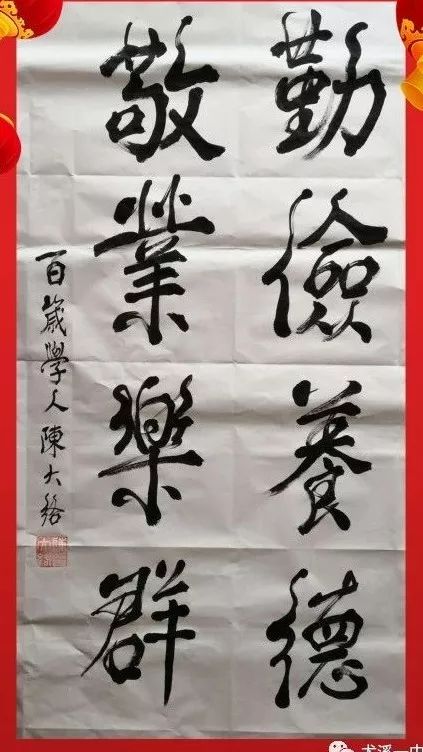 勤儉養德
敬業樂群
百歲學人陳大絡
尤溪一中